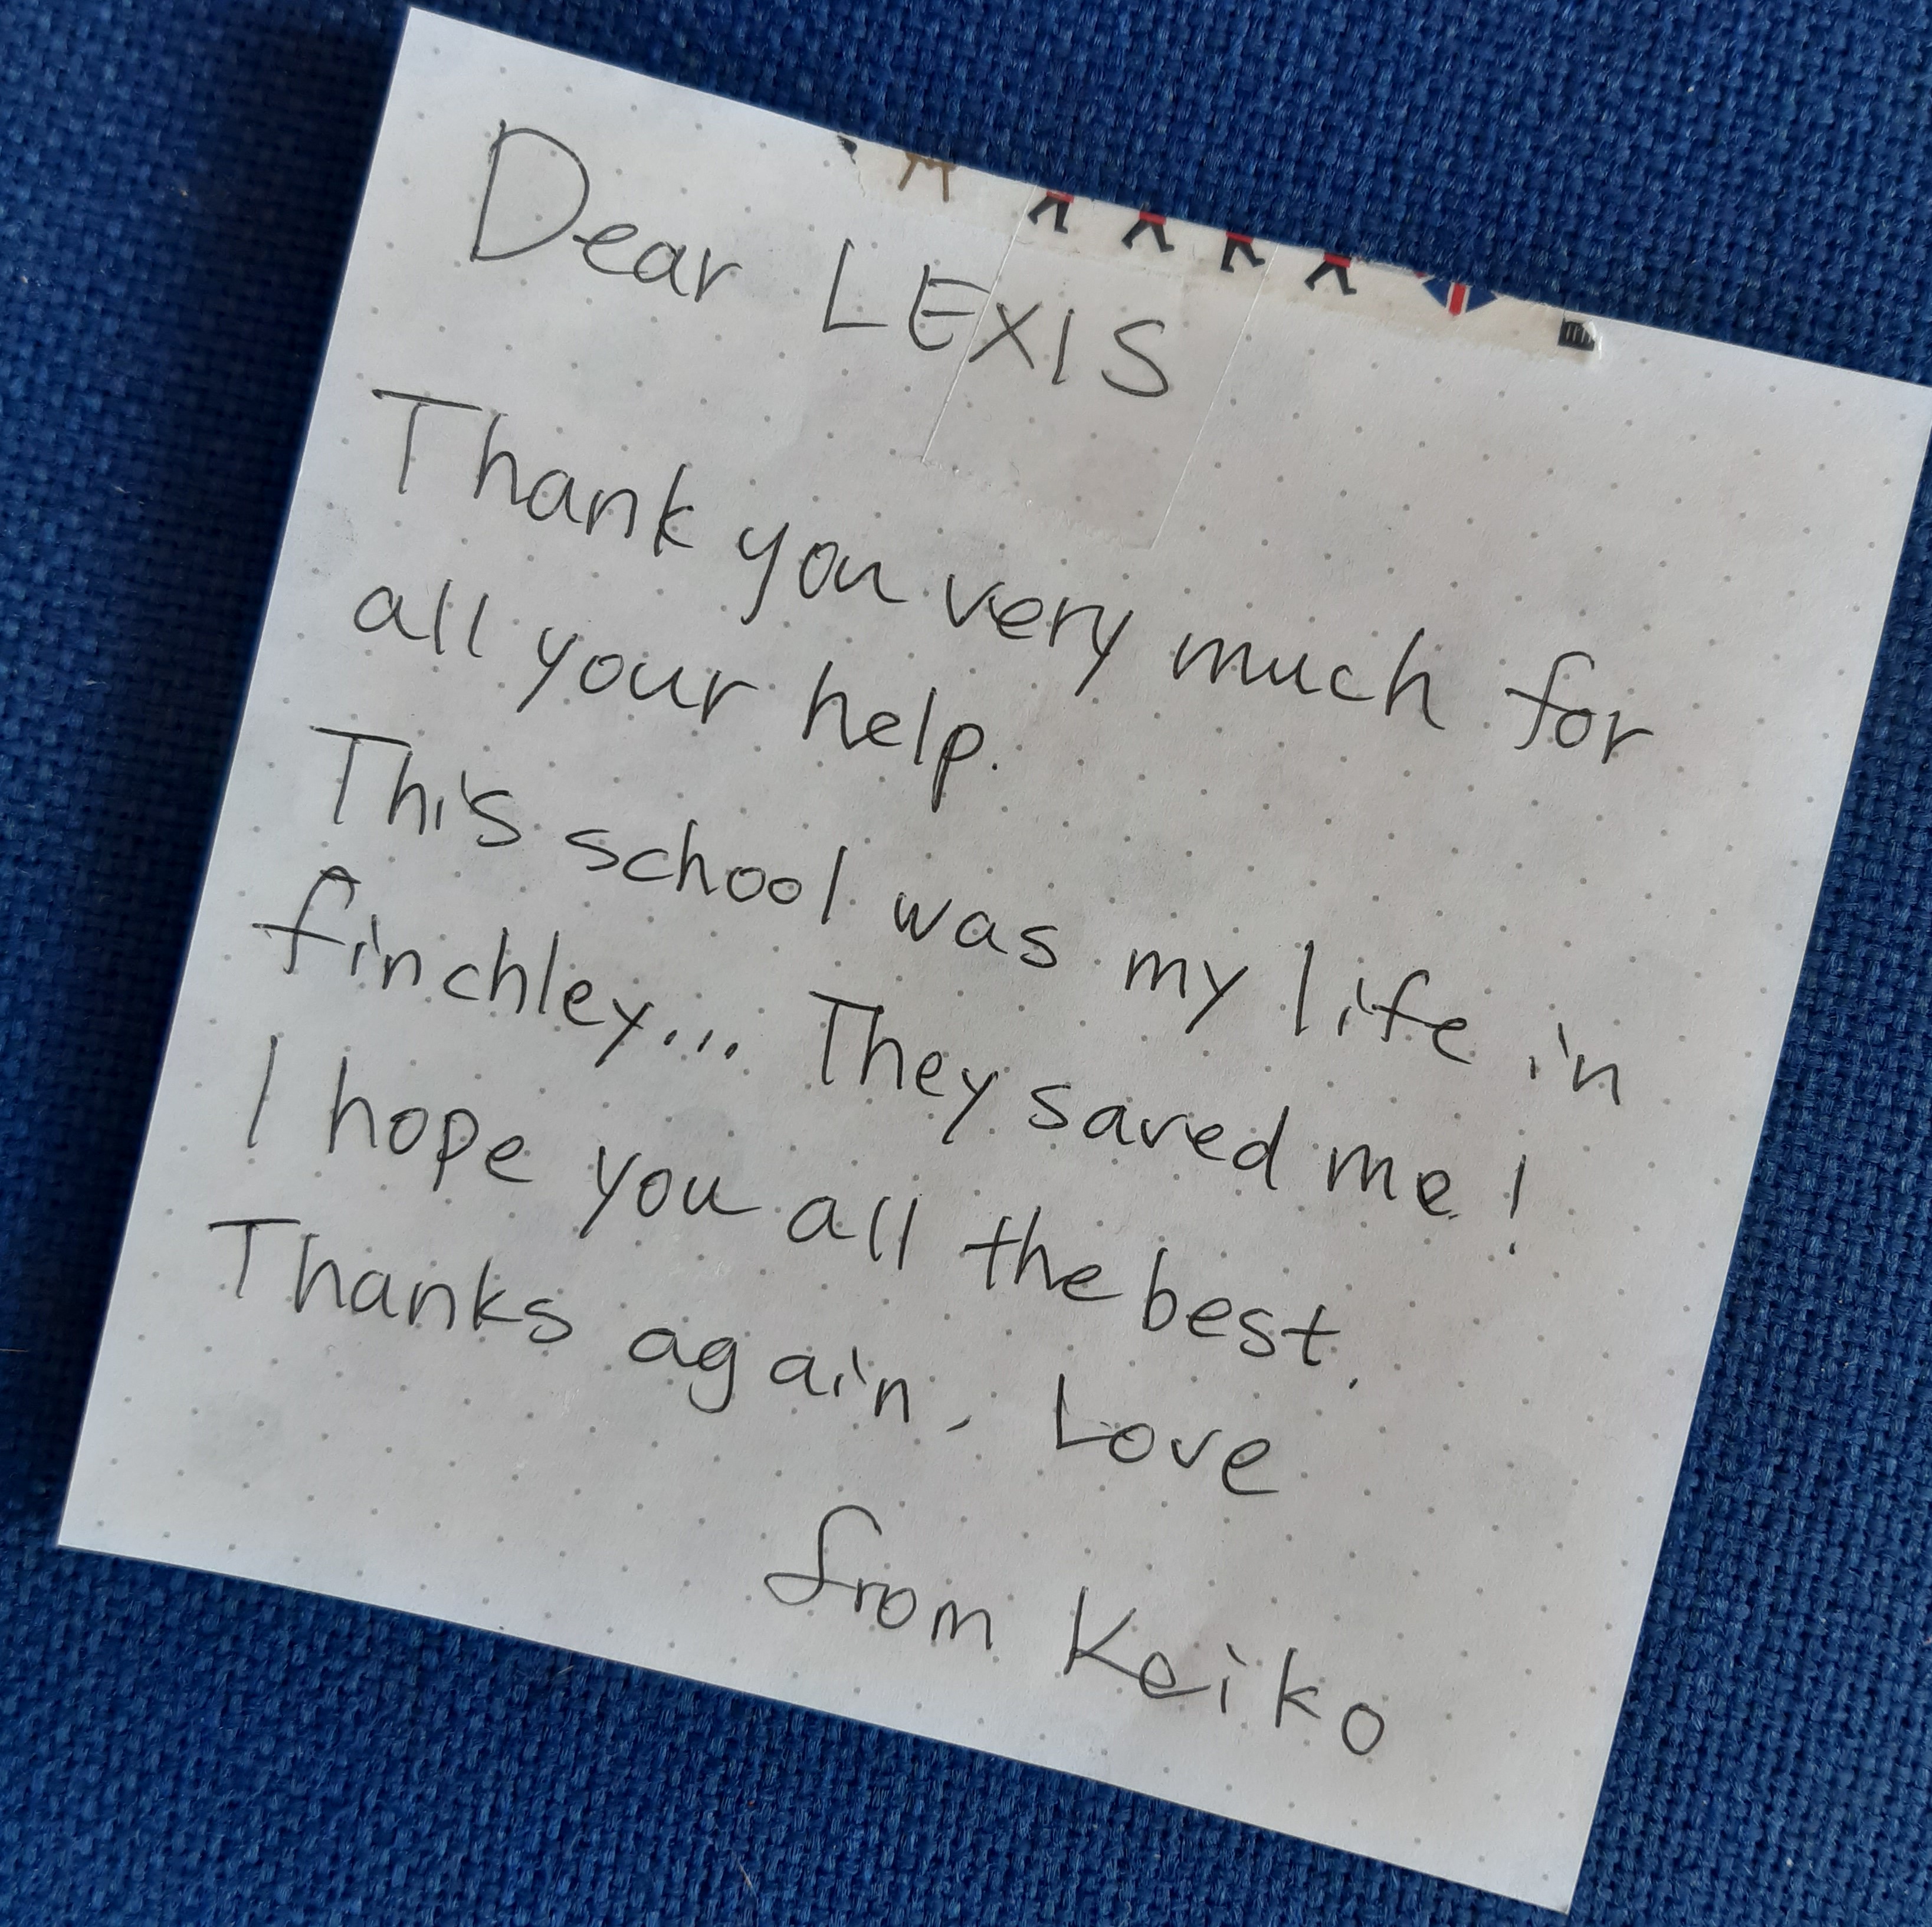 Dear LEXIS
Thank you very much for
all your help.
This school was my life in
finchley... They saved me!
I hope you all the best.
Thanks again, Love
from Keiko